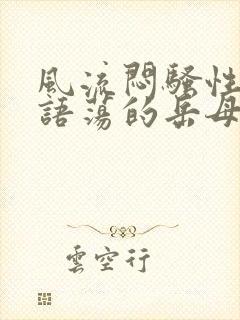 風流悶騷性
語蕩的岳母
雲空行